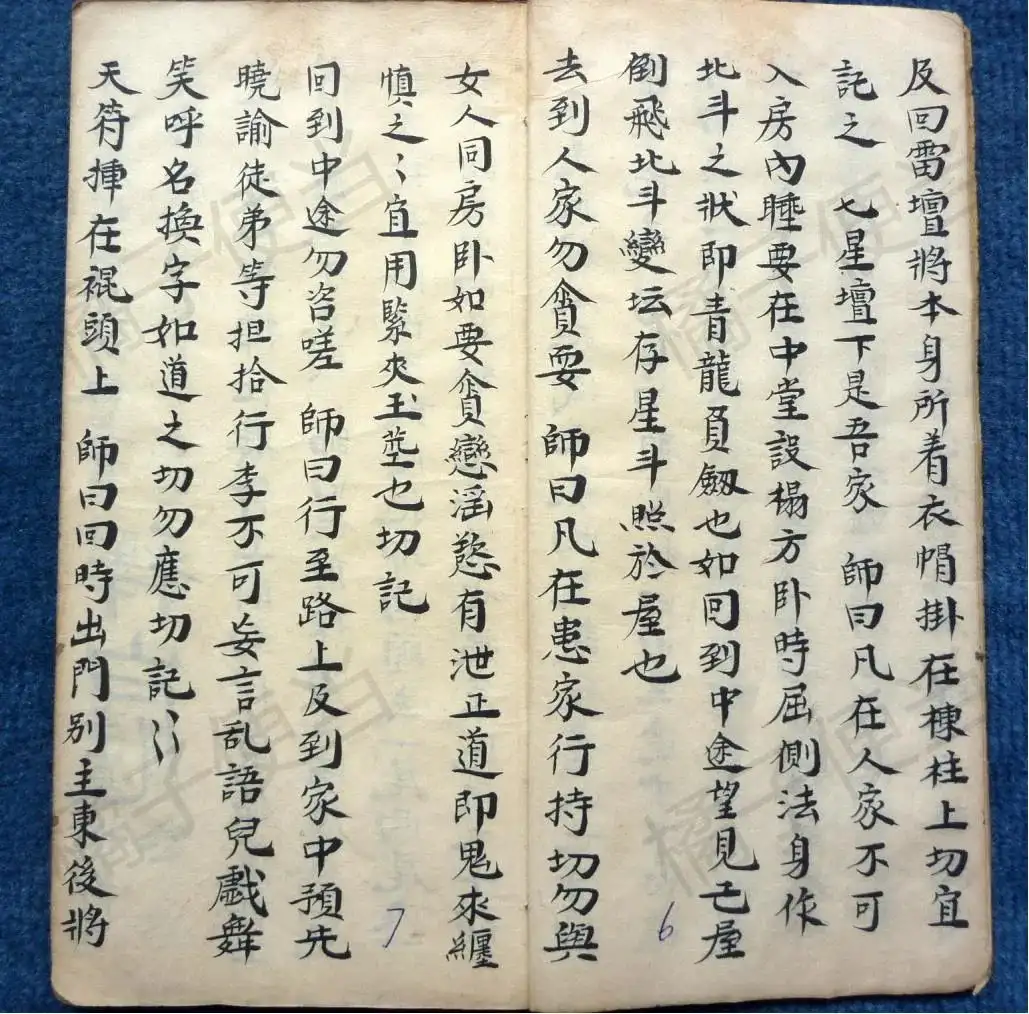 及回雷壇將本身所着衣帽掛在棟柱上切宜
記之 七星壇下是吾家 師曰凡在人家不可
入房內睡要在中堂設榻方卧時屈側法身作
北斗之狀即青龍負劔也如回到中途望見己屋
倒飛北斗變坛存星斗照於屋也
6
去到人家勿貪耍 師曰凡在患家行持切勿與
女人同房卧如要貪戀滛慾有泄正道即鬼來纏
慎之〻宜用緊夾玉莖也切記
7
回到中途勿咨嗟 師曰行至路上及到家中預先
曉諭徒弟等担拾行李不可妄言乱語兒戲舞
笑呼名換字如道之切勿應切記〻〻
天符揷在裩頭上 師曰回時出門别主東後將
橘子便当
橘子便当
橘子便当
橘子便当